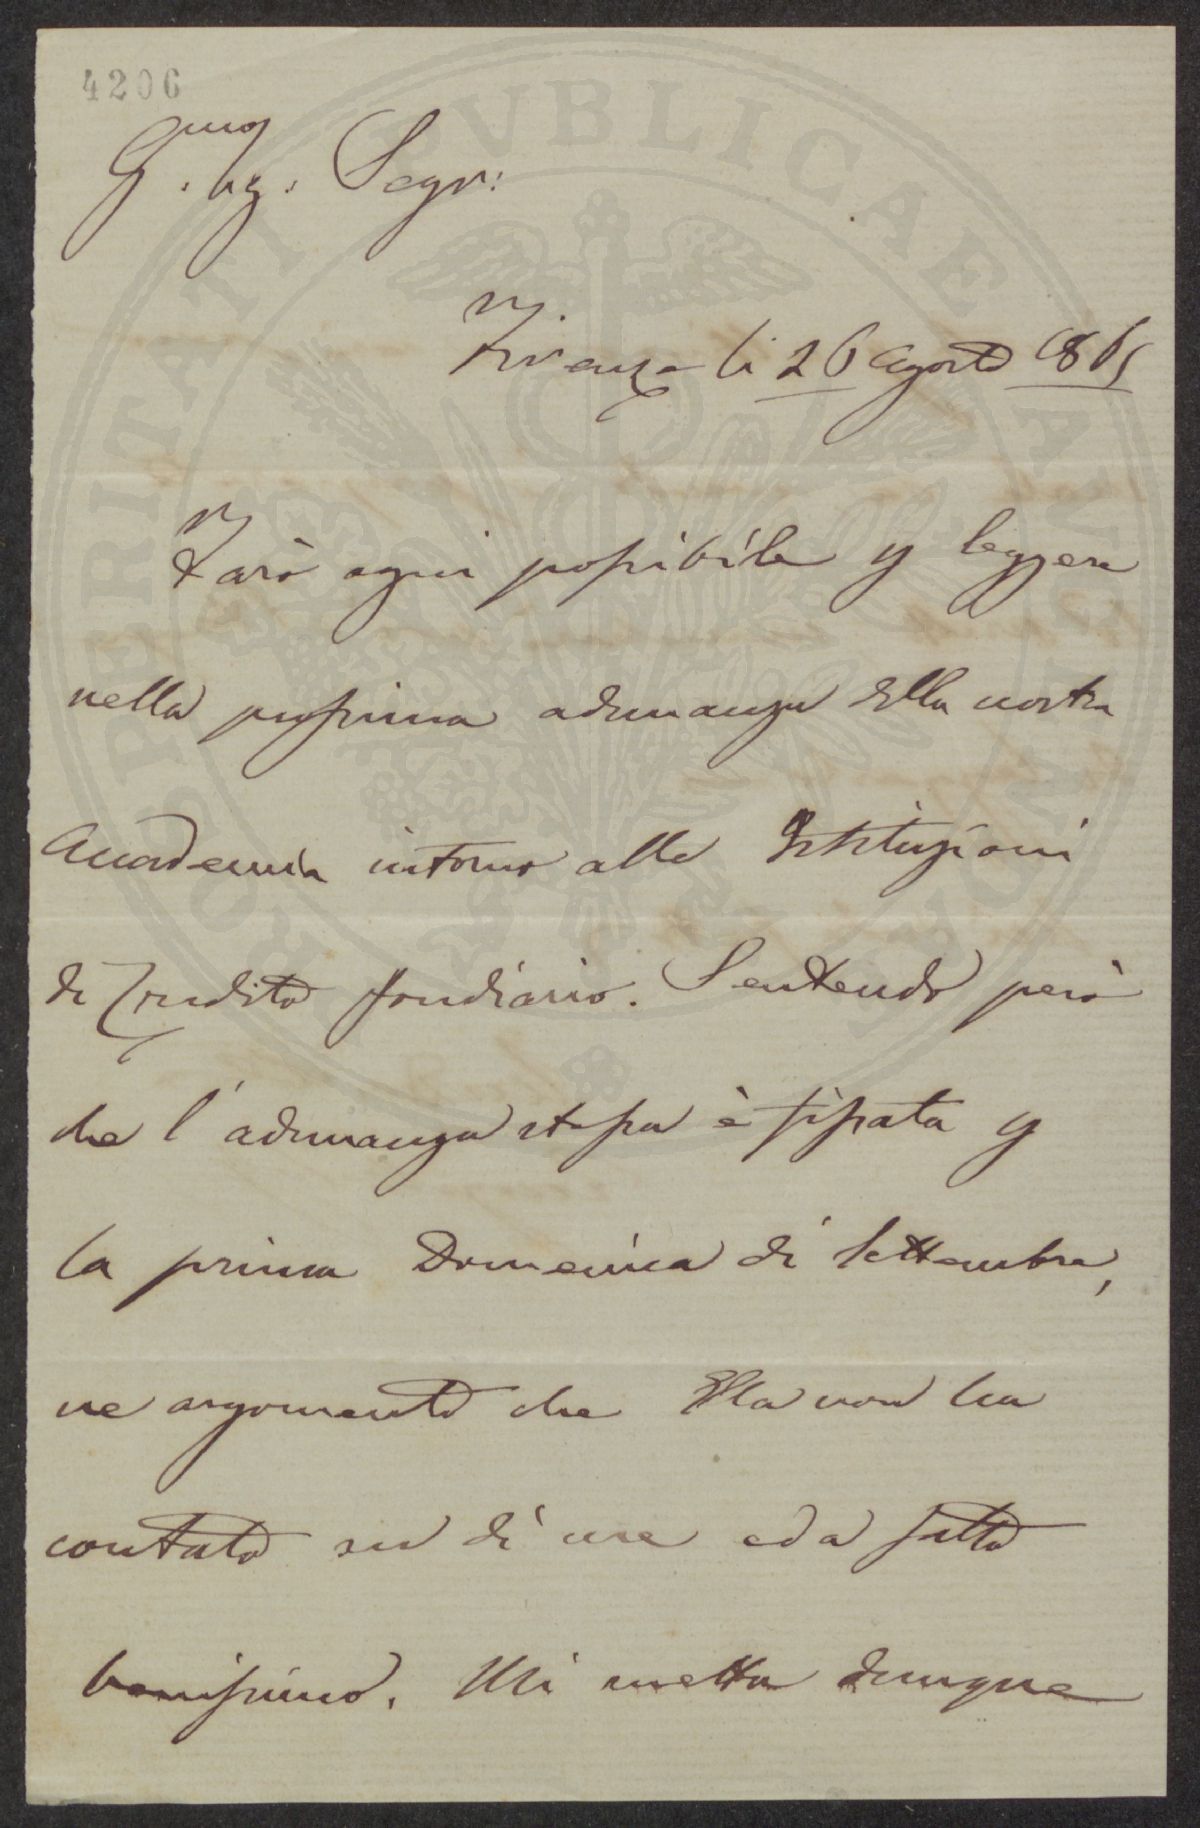 4206
Segr:
Firenze li 26 Agosto 1865
Farò ogni possibile p leggere
nella prossima adunanza della nostra
Accademia intorno alle Istituzioni
di Credito fondiario. Sentendo però
che l'adunanza stessa è fissata p
la prima Domenica di Settembre,
ne argomento che Ella non ha
contato su di me ed a fatto
benissimo. Mi metta dunque
PROSPERITATI PVBLICAE AVGENDAE